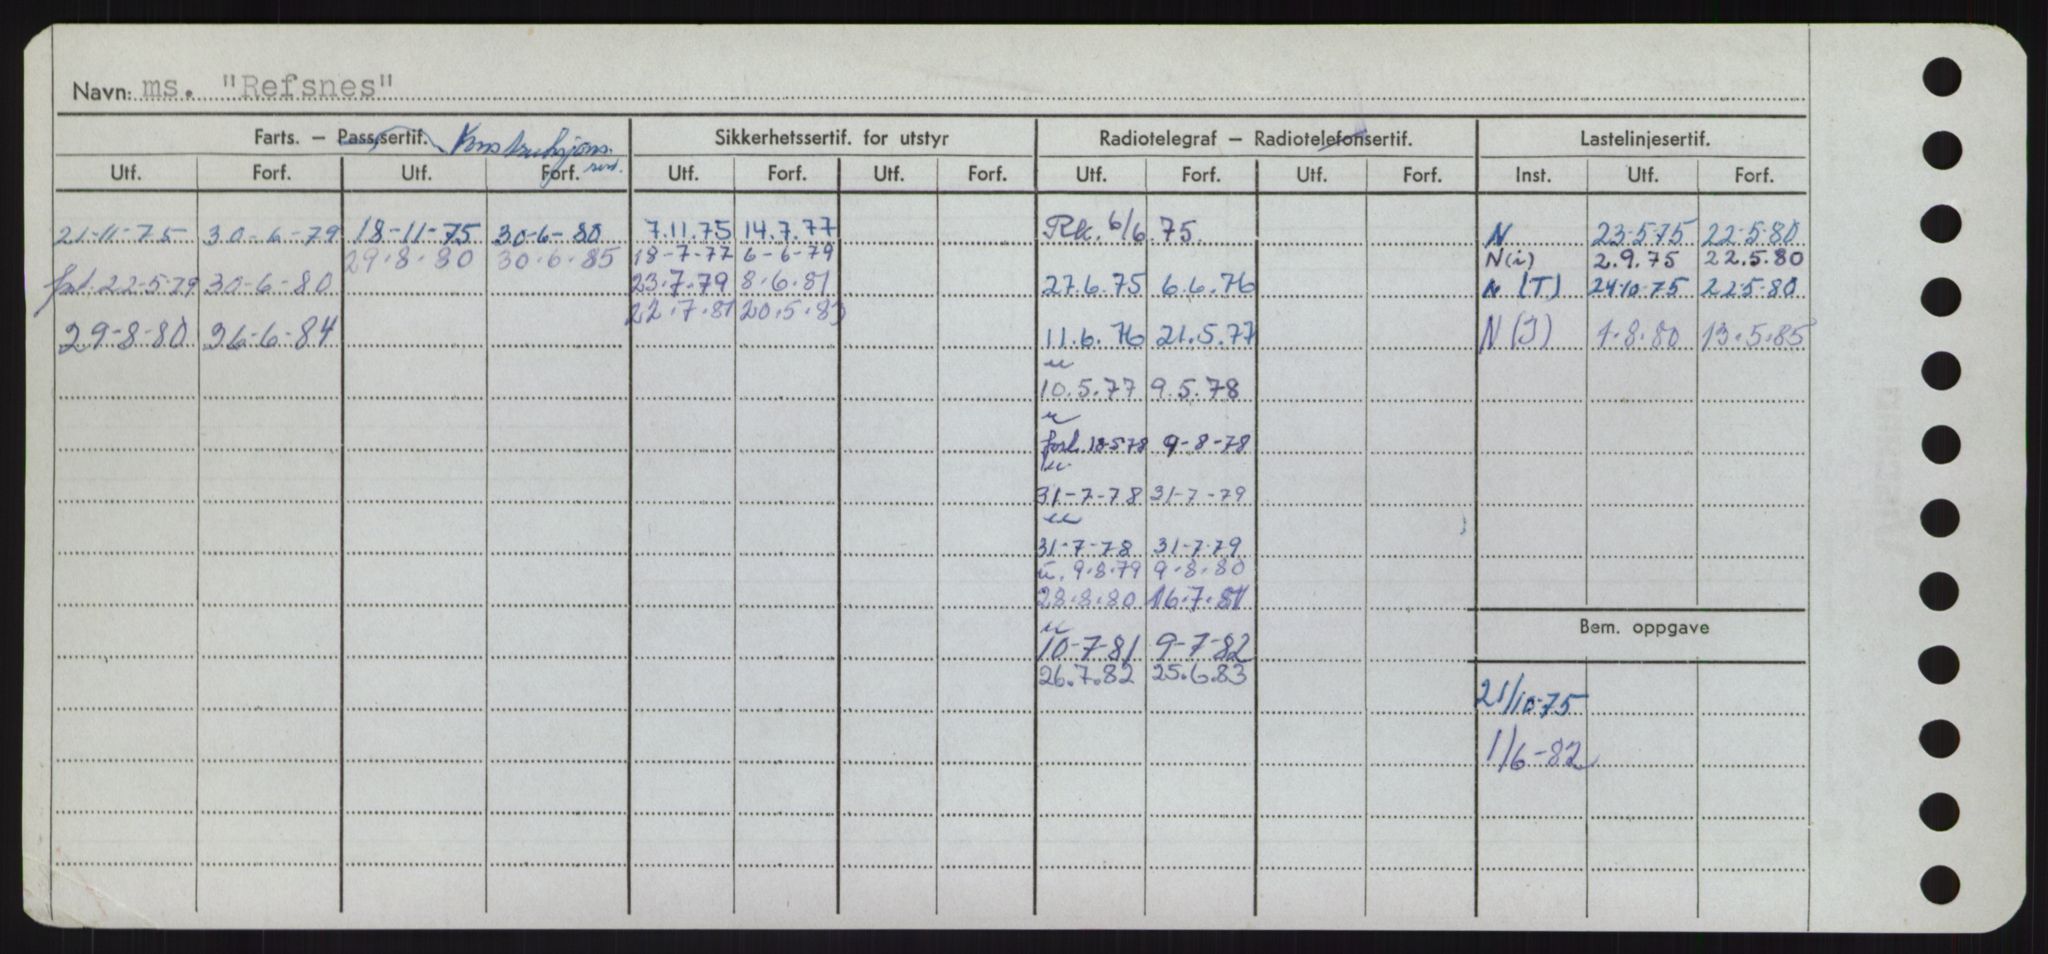 Navn: ms. "Refsnes"
Farts. — Pass.sertif. Konstruksjons- sert. Sikkerhetssertif. for utstyr Radiotelegraf — Radiotelefonsertif. Lastelinjesertif.
Utf. Forf. Utf. Forf. Utf. Forf. Utf. Forf. Utf. Forf. Utf. Forf. Inst. Utf. Forf.
21-11-75 30-6-79 18-11-75 30-6-80 7.11.75 14.7.77 Rk. 6/6.75. N 23-5-75 22-5-80
29.8.80 30.6.85 18-7-77 6-6-79 N(i) 2.9.75 22.5.80
forl. 22-5-79 30-6-80 23.7.79 8.6.81 27.6.75 6.6.76 N (T) 24-10-75 22-5-80
22.7.81 20.5.83
29-8-80 36-6-84 11.6.76 21.5.77 N(I) 1.8.80 13.5.85
u
10.5.77 9.5.78
u
forl. 18-5-78 9-8-78
u
31-7-78 31-7-79
u
31-7-78 31-7-79
u. 9.8.79 9.8.80
28.8.80 16.7.81
Bem. oppgave
u
10-7-81 9-7-82
26.7.82 25.6.83
21/10-75
1/6-82